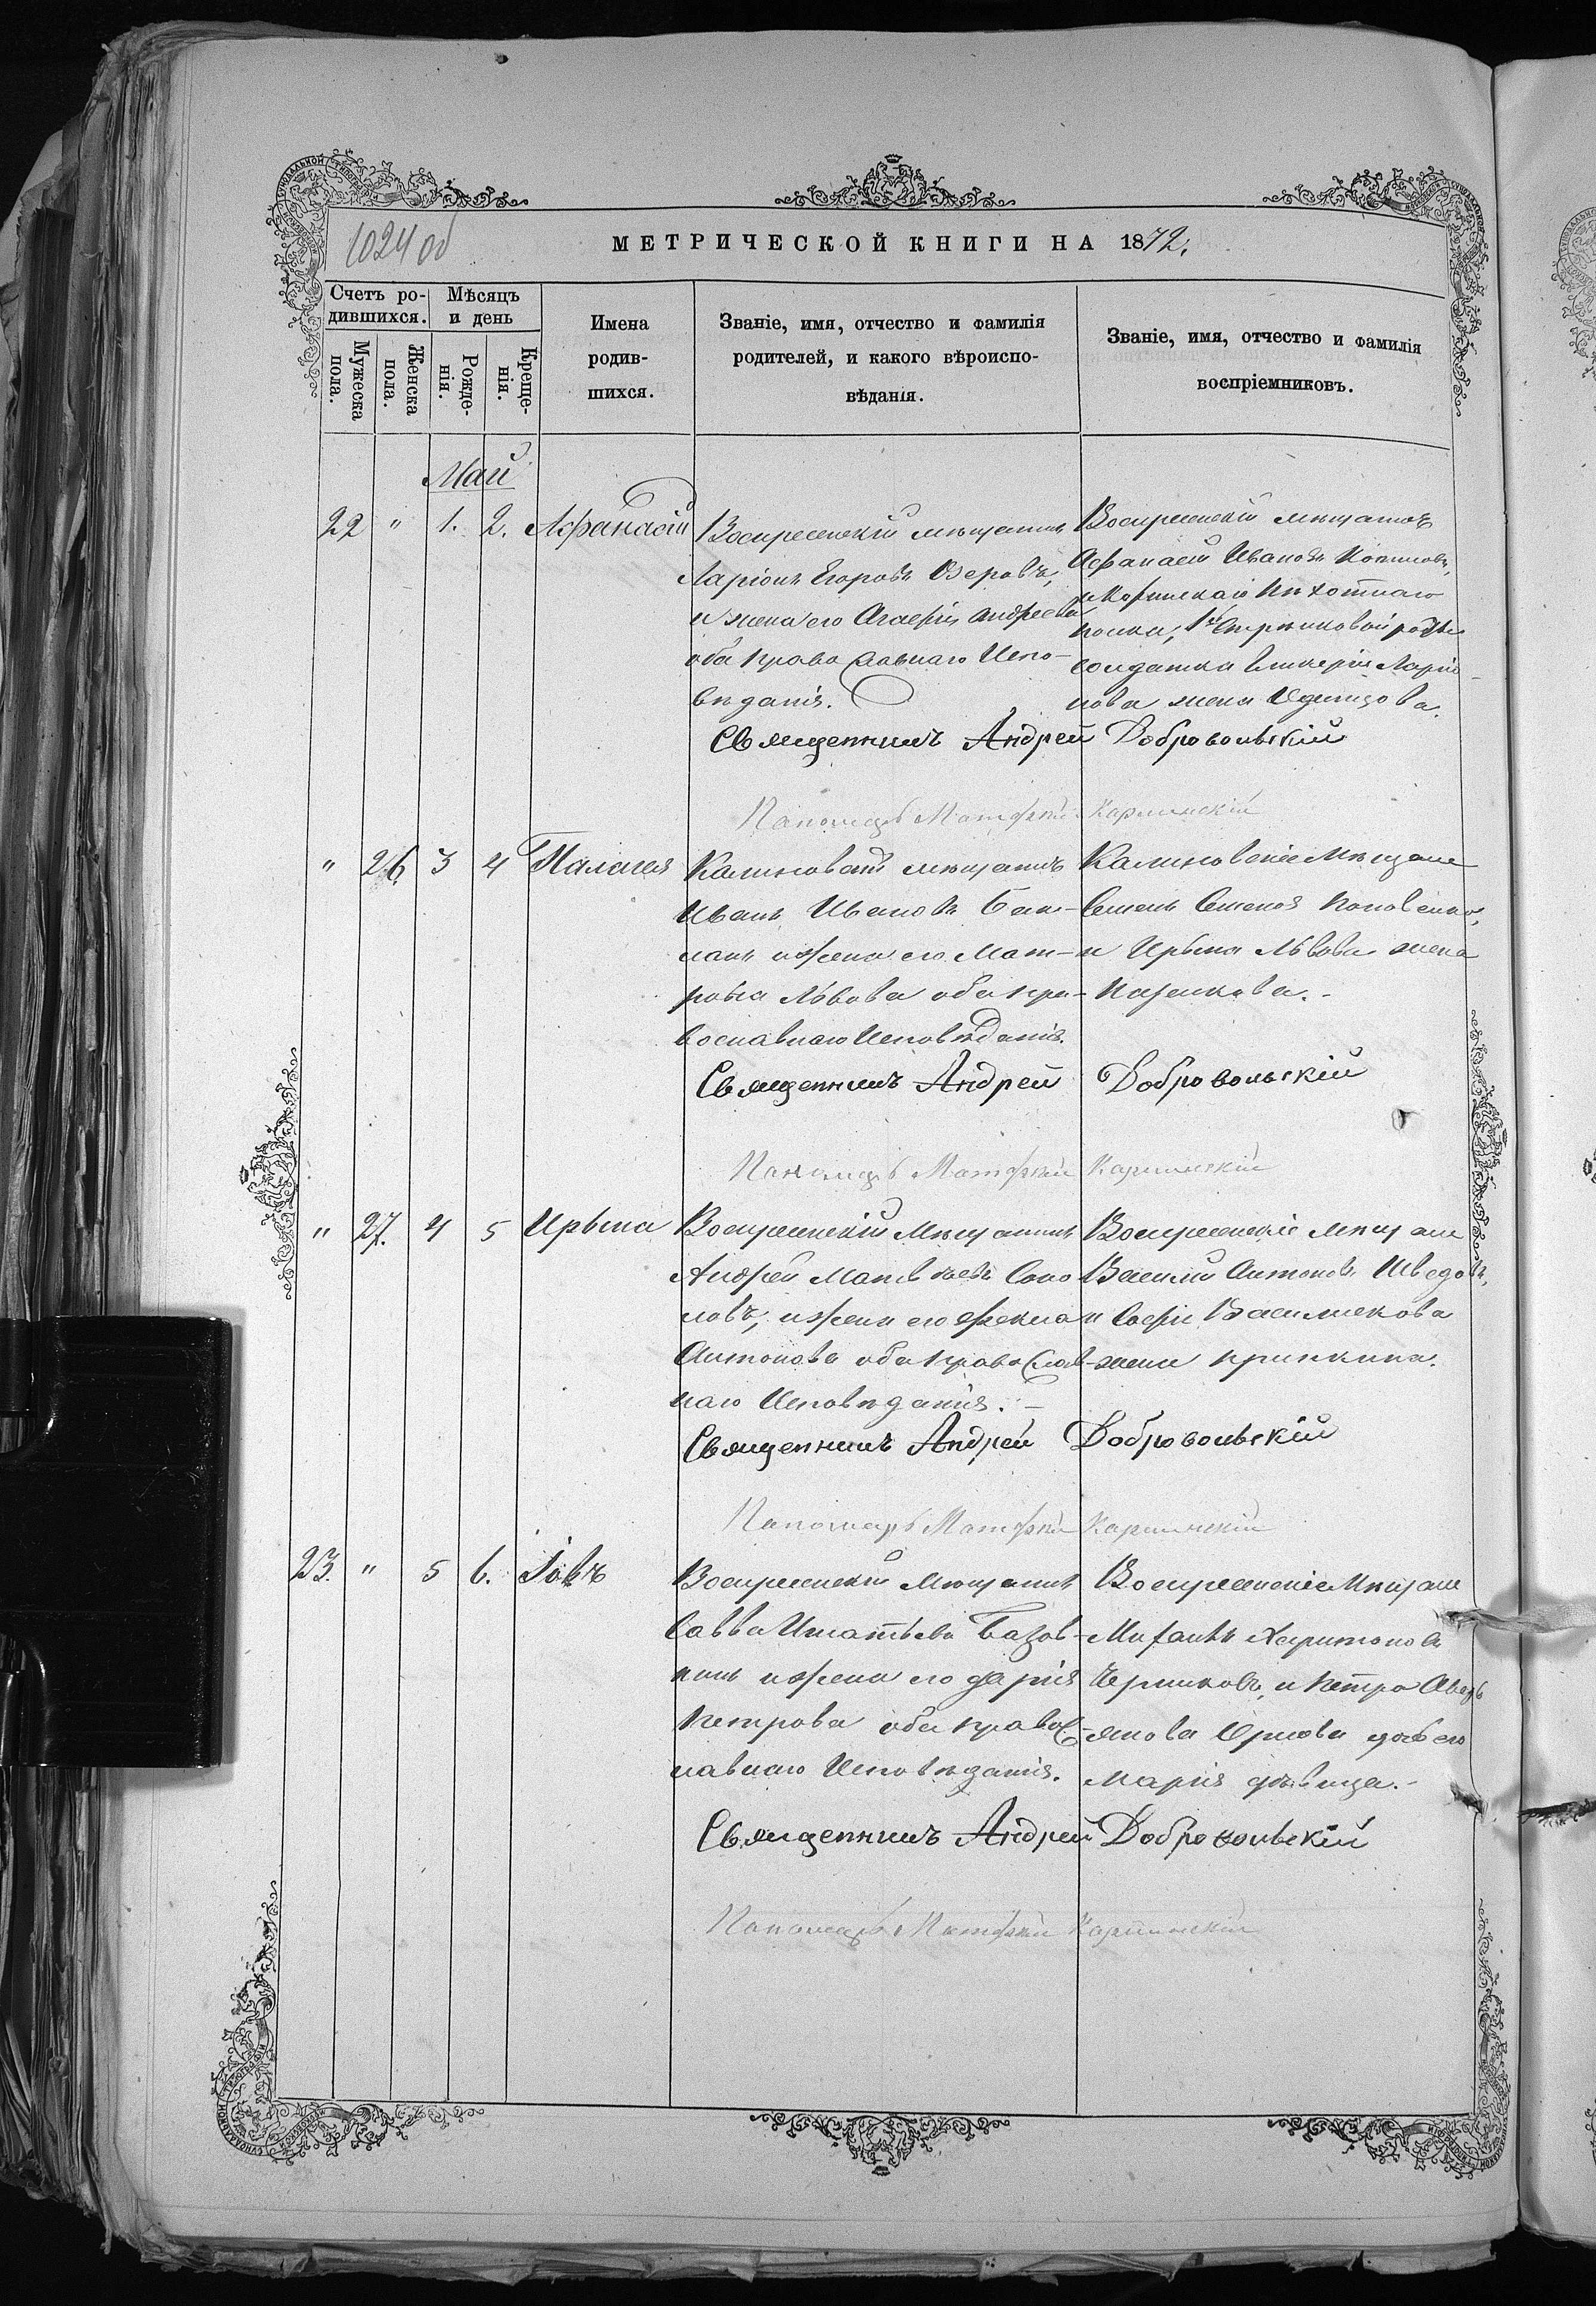 1024 об
МЕТРИЧЕСКОЙ КНИГИ НА 1872.
Счетъ ро-
дившихся.
Мѣсяцъ
и день
Мужеска
пола.
Женска
пола.
Рожде-
нія.
Креще-
нія.
Имена
родив-
шихся.
Званіе, имя, отчество и фамилія
родителей, и какого вѣроиспо-
вѣданія.
Званіе, имя, отчество и фамилія
воспріемниковъ.
Май
22 " 1. 2. Афанасій
Воскресенскій мѣщанинъ
Ларіонъ Егоровъ Озеровъ,
и жена его Агаефія Андреева
оба Православнаго Испо-
вѣданія.
Воскресенскій мѣщанинъ
Афанасій Ивановъ
Пѣхотнаго
полка, 1й Стрѣлковой роты
солдатка Ларіо-
нова жена Одинцова.
Священникъ Андрей Добровольскій
Пономарь Матфей
" 26 3 4 Палагея
Калиновскій мѣщанинъ
Иванъ Ивановъ Бак-
ланъ и жена его Мат-
рона Львова оба пра-
вославнаго Исповѣданія.
Калиновскіе Мѣщане
Семенъ Семеновъ
и Ирына Львова жена
Священникъ Андрей Добровольскій
Пономарь Матфей
" 27. 4 5 Ирына
Воскресенскій Мѣщанинъ
Андрей Матвѣевъ Соко
ловъ, и жена его Фекла
Антонова оба православ-
наго Исповѣданія. -
Воскресенскіе мѣщане
Василій Антоновъ Шведовъ,
и Софія
жена
Священникъ Андрей Добровольскій
Пономарь Матфей
23. " 5 6. Іовъ
Воскресенскій Мѣщанинъ
Савва Игнатьевъ Базов-
кинъ и жена его Дарія
Петрова оба правос-
лавнаго Исповѣданія.
Воскресенскіе Мѣщане
Михаилъ Харитоновъ
Черниковъ, и Петра Аверь
янова Орлова дочь его
Марія дѣвица. -
Священникъ Андрей Добровольскій
Пономарь Матфей